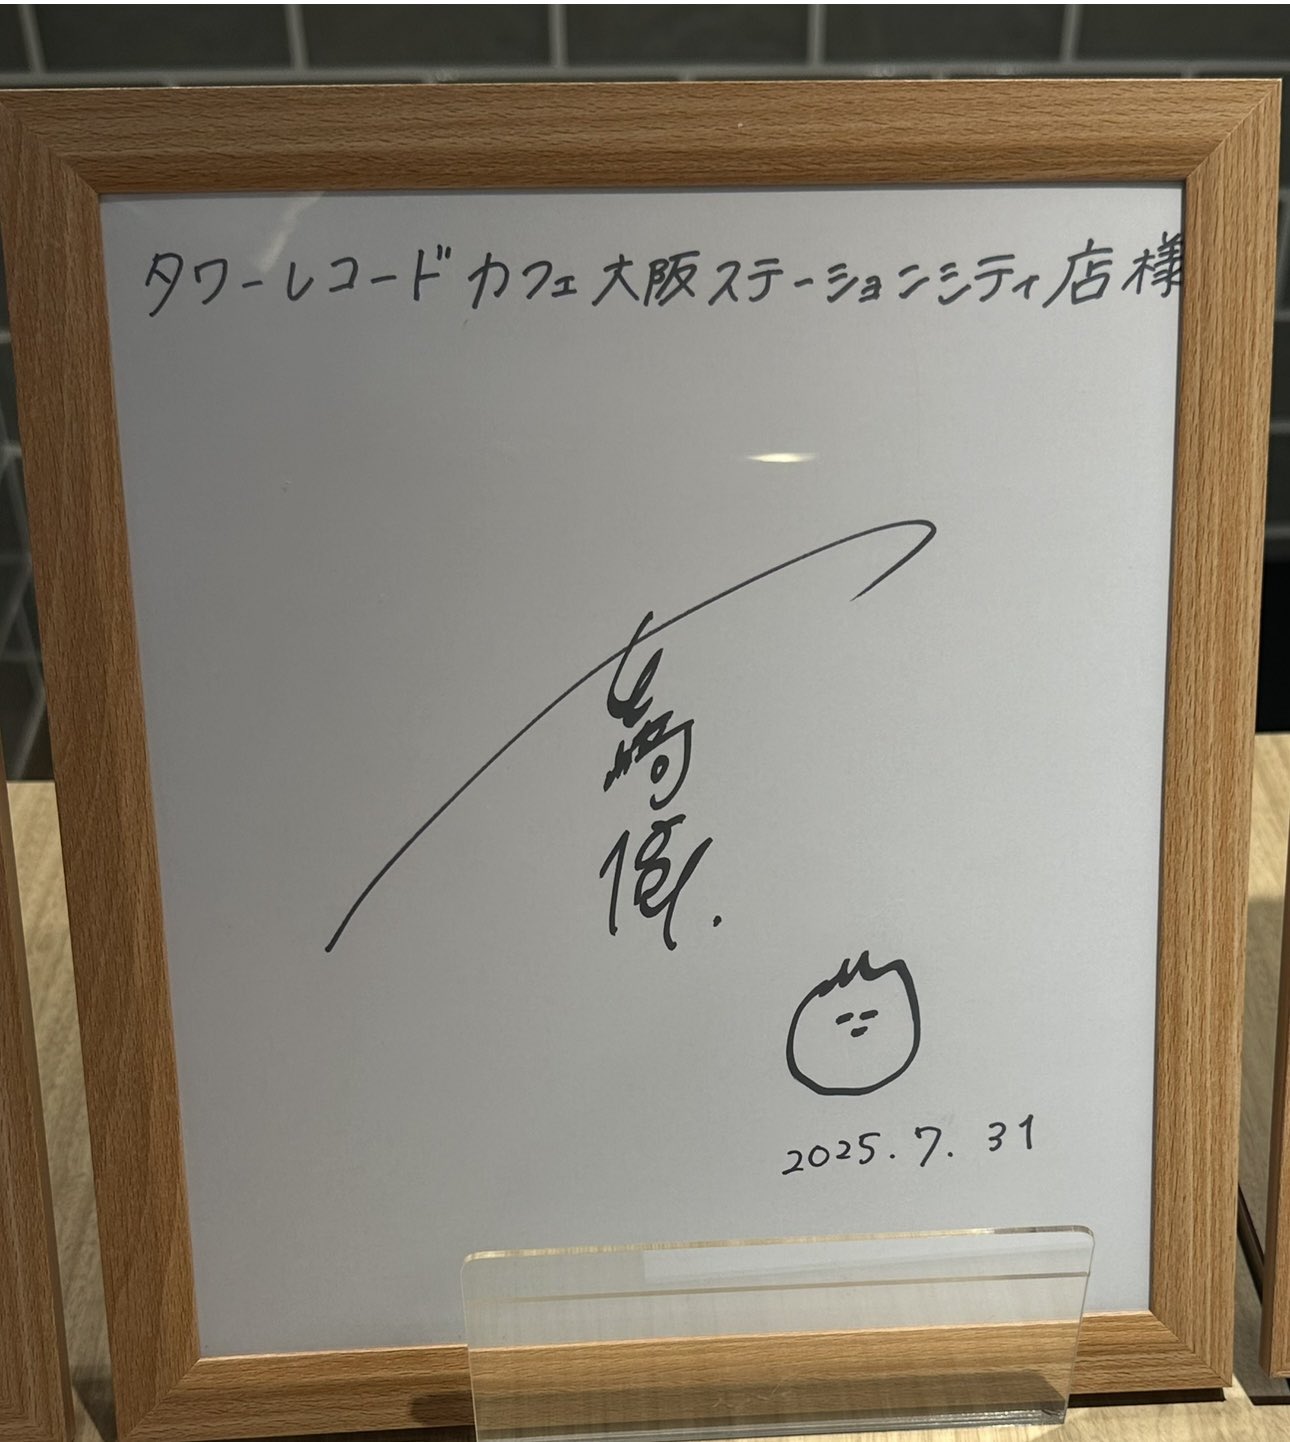 タワーレコードカフェ大阪ステーションシティ店様
2025.7.31